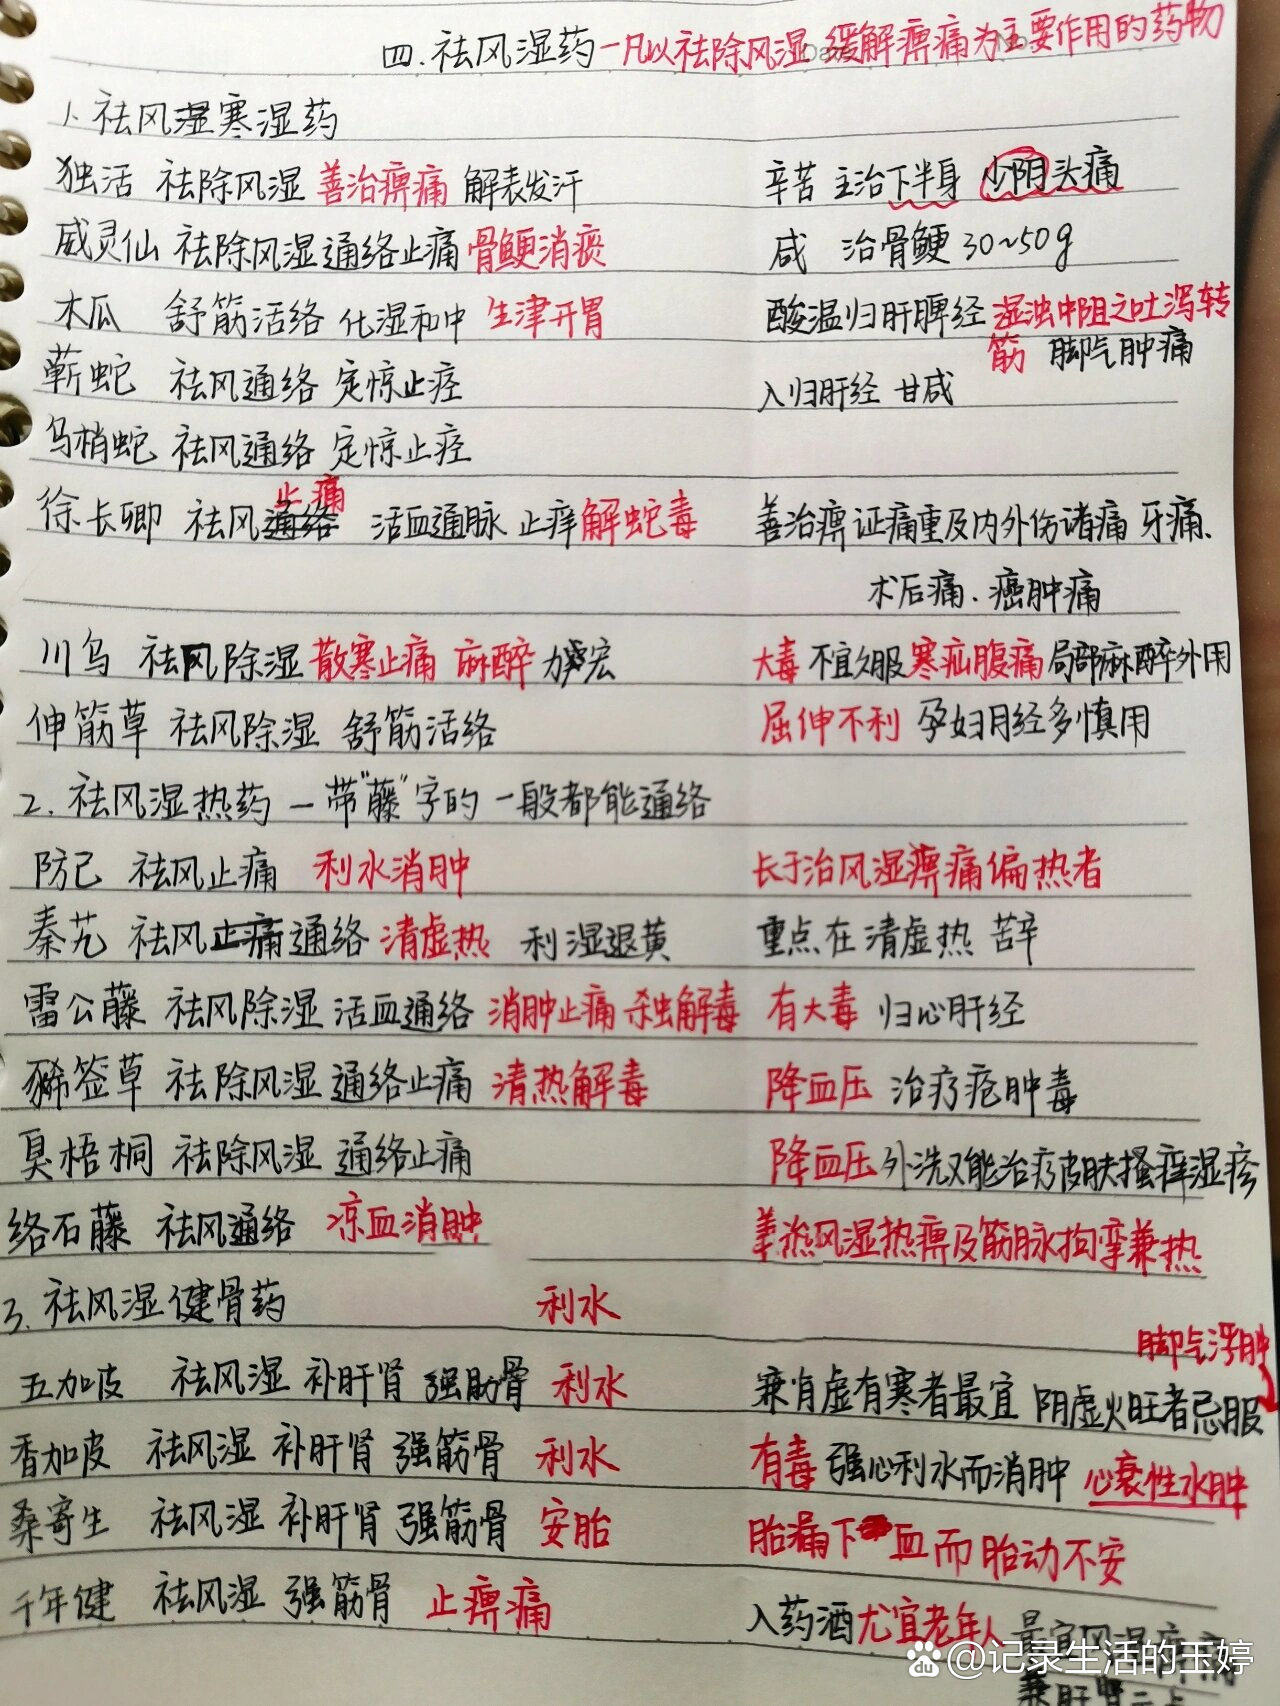 四.祛风湿药—凡以祛除风湿 缓解痹痛为主要作用的药物
1. 祛风湿寒湿药
独活 祛除风湿 善治痹痛 解表发汗 辛苦 主治下半身 少阴头痛
威灵仙 祛除风湿 通络止痛 骨鲠消痰 咸 治骨鲠 30~50g
木瓜 舒筋活络 化湿和中 生津开胃 酸温归肝脾经 湿浊中阻之吐泻转
筋 脚气肿痛
蕲蛇 祛风通络 定惊止痉 入归肝经 甘咸
乌梢蛇 祛风通络 定惊止痉
止痛
徐长卿 祛风通络 活血通脉 止痒 解蛇毒 善治痹证痛重及内外伤诸痛 牙痛.
术后痛. 癌肿痛
川乌 祛风除湿 散寒止痛 麻醉 大毒 不宜久服 寒疝腹痛 局部麻醉外用
伸筋草 祛风除湿 舒筋活络 屈伸不利 孕妇月经多慎用
2. 祛风湿热药 — 带"藤"字的一般都能通络
防己 祛风止痛 利水消肿 长于治风湿痹痛偏热者
秦艽 祛风止痛通络 清虚热 利湿退黄 重点在清虚热 苦辛
雷公藤 祛风除湿 活血通络 消肿止痛 杀虫解毒 有大毒 归心肝经
豨签草 祛除风湿 通络止痛 清热解毒 降血压 治疗疮肿毒
臭梧桐 祛除风湿 通络止痛 降血压 外洗又能治疗皮肤搔痒湿疹
络石藤 祛风通络 凉血消肿 善治风湿热痹及筋脉拘挛兼热
3. 祛风湿健骨药 利水
脚气浮肿
五加皮 祛风湿 补肝肾 强筋骨 利水 兼肖虚有寒者最宜 阴虚火旺者忌服
香加皮 祛风湿 补肝肾 强筋骨 利水 有毒 强心利水而消肿 心衰性水肿
桑寄生 祛风湿 补肝肾 强筋骨 安胎 胎漏下血而胎动不安
千年健 祛风湿 强筋骨 止痹痛 入药酒 尤宜老年人 最宜风湿痹痛
兼肝肾
Bai du @记录生活的玉婷